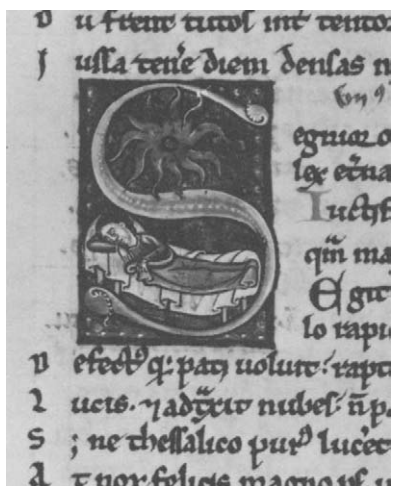 D u frent tutos int tentor
J ussa tene diem densas n
S egnior o
lex et̄na
Luctif
qm̄ ma
Egit
lo rapi
D efect⁹ q; pati uoluit : rapt
L ucis. ⁊ adtxit nubes. n̄ p
S ; ne thessalico pur⁹ lucet
A t nox felicis magno ps u